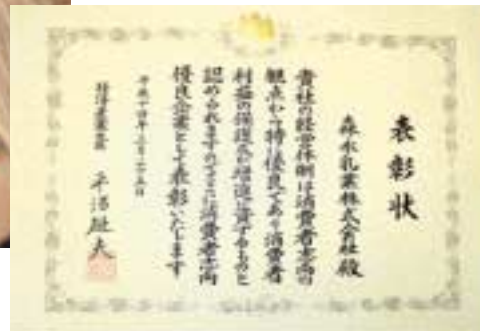 表彰状
森永乳業株式会社殿
貴社の経営体制は消費者志向の
観点から特に優良であり消費者
利益の保護及び増進に資するものと
認められますのでここに消費者志向
優良企業として表彰いたします
平成十四年
経済産業大臣 平沼赳夫